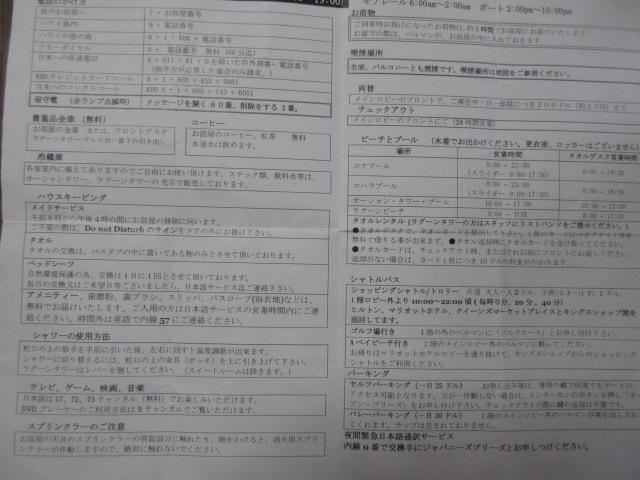 電話のかけ方
他のお部屋へ 7+お部屋番号
ハワイの島内 9+電話番号
ハワイの他の島 8+1+808+電話番号
フリーダイヤル 8+電話番号 無料 (60分迄)
日本への直通電話 8+011+81+0を除いた市外局番+電話番号
(相手方が応答した場合のみ請求。)
KDDクレジットカードコール 8+1+800+433+0081
日本へのコレクトコール KDD 8+1+800+543+0051
留守電 (赤ランプ点滅時) メッセージを聞く60番、削除をする2番。
貴重品金庫 (無料)
お部屋の金庫 または、フロントデスク
ラグーンタワー:テレビ台一番下の引き出し
コーヒー
お部屋のコーヒー、紅茶 無料
水道水は飲めます。
冷蔵庫
各客室内に備えてありますのでご自由にお使い頂けます。スナック類、飲料水等は、
オーシャンタワー、ラグーンタワーの売店で販売しております。
ハウスキーピング
メイドサービス
午前8時から午後4時の間にお部屋の掃除に伺います。
ご不要の際は、Do not Disturbのサインをドアの外にお掛け下さい。
タオル
タオルの交換は、バスタブの中に置いてある物のみとさせて頂いております。
ベッドシーツ
自然環境保護の為、交換は4日に1回とさせて頂いております。
毎日の交換又はご希望日等ございましたら、日本語サービス迄ご連絡下さい。
アメニティー、歯磨粉、歯ブラシ、スリッパ、バスローブ(浴衣地)などは、
無料でお届けいたします。ご入用の方は日本語サービスの営業時間内にご連
絡ください。時間外は英語で内線57にご連絡ください。
シャワーの使用方法
蛇口の上の取手を手前に引いた後、左右に回すと温度調節が出来ます。
シャワーに切り替えるには、蛇口の上の金具(ポッチ)を上に引き上げて下さい。
ラグーンタワーはレバーを廻してください。(スイートルームは除きます。)
テレビ、ゲーム、映画、音楽
日本語は17, 72, 73チャンネル(無料)でお楽しみいただけます。
DVDプレーヤーのご利用方法は9チャンネルでご覧いただけます。
スプリンクラーのご注意
お部屋の天井のスプリンクラーの突起部分に触れたり、物をかけると、消火用スプリ
ンクラーが作動しますので、絶対に触れないでください。
モノレール 6:00am~2:00am ボート 2:00pm~10:00pm
お荷物
ご到着時お預けになったお荷物は、約1時間でお部屋にお届けいたします。
お留守の際は、ベルマンが、お部屋の中に入れておきます。
喫煙場所
全室、バルコニーとも禁煙です。喫煙場所は地図をご参照ください。
両替
メインロビーのフロントで、ご滞在中一日一部屋につき200ドル(約2万円)まで
チェックアウト
メインロビーのフロントにて(24時間営業)
ビーチとプール (水着でお出かけください。更衣室、ロッカーはございません)
場所 営業時間 タオルデスク営業時間
コナプール 8:00 ~ 23:00
(スライダー 9:00-17:30) 8:00 ~ 18:30
コハラプール 8:00 ~ 23:00
(スライダー 9:00-17:30) 8:00 ~ 18:30
オーシャン・タワー・プール 10:00 ~ 17:00 10:00 ~ 17:00
ラグーンビーチ 8:00 ~ 日没 8:00 ~ 17:00
タオルレンタル (ラグーンタワーの方はスタッフにリストバンドをご提示ください。)
無料で借りる事が出来ます。●タオル返却時にタオルカードを受け取ってください。
●タオルカードは、チェックアウト時、またはそれ以前にフロントにお返しください。
返却がない場合は、カード1枚につき10ドルの料金がかかります。
シャトルバス
ショッピングシャトル/トロリー 片道 大人一人2ドル、
1階ロビー外より10:00~22:00頃(毎時0分、20分、40分)
ヒルトン、マリオットホテル、クイーンズマーケットプレイスとキングスショップ間を
巡回してます。
ゴルフ場行き 1階の外のベルマンに「ゴルフコース」とお申し付け下さい。
Aベイビーチ行き 2階のメインロビー外のベルマンに頼んでください。
お帰りはマリオットホテルロビーを通り抜けて、キングスショップからのショッピング
シャトルをご利用ください。
パーキング
セルフパーキング (一日25ドル) お申し込み後は、専用の鍵で何度でもゲートの
アクセス可能となります。万が一作動しない場合は、インターホンのボタンを押し「オー
プン・プリーズ」をお申し付け下さい。チェックアウトの際に鍵の返却は不要です。
バレーパーキング (一日30ドル) 2階のメインロビー外のベルマンが車を出し入れ
してくれます。チップは含まれておりません。
夜間緊急日本語通訳サービス
内線0番で交換手にジャパニーズプリーズとお申しつけください。